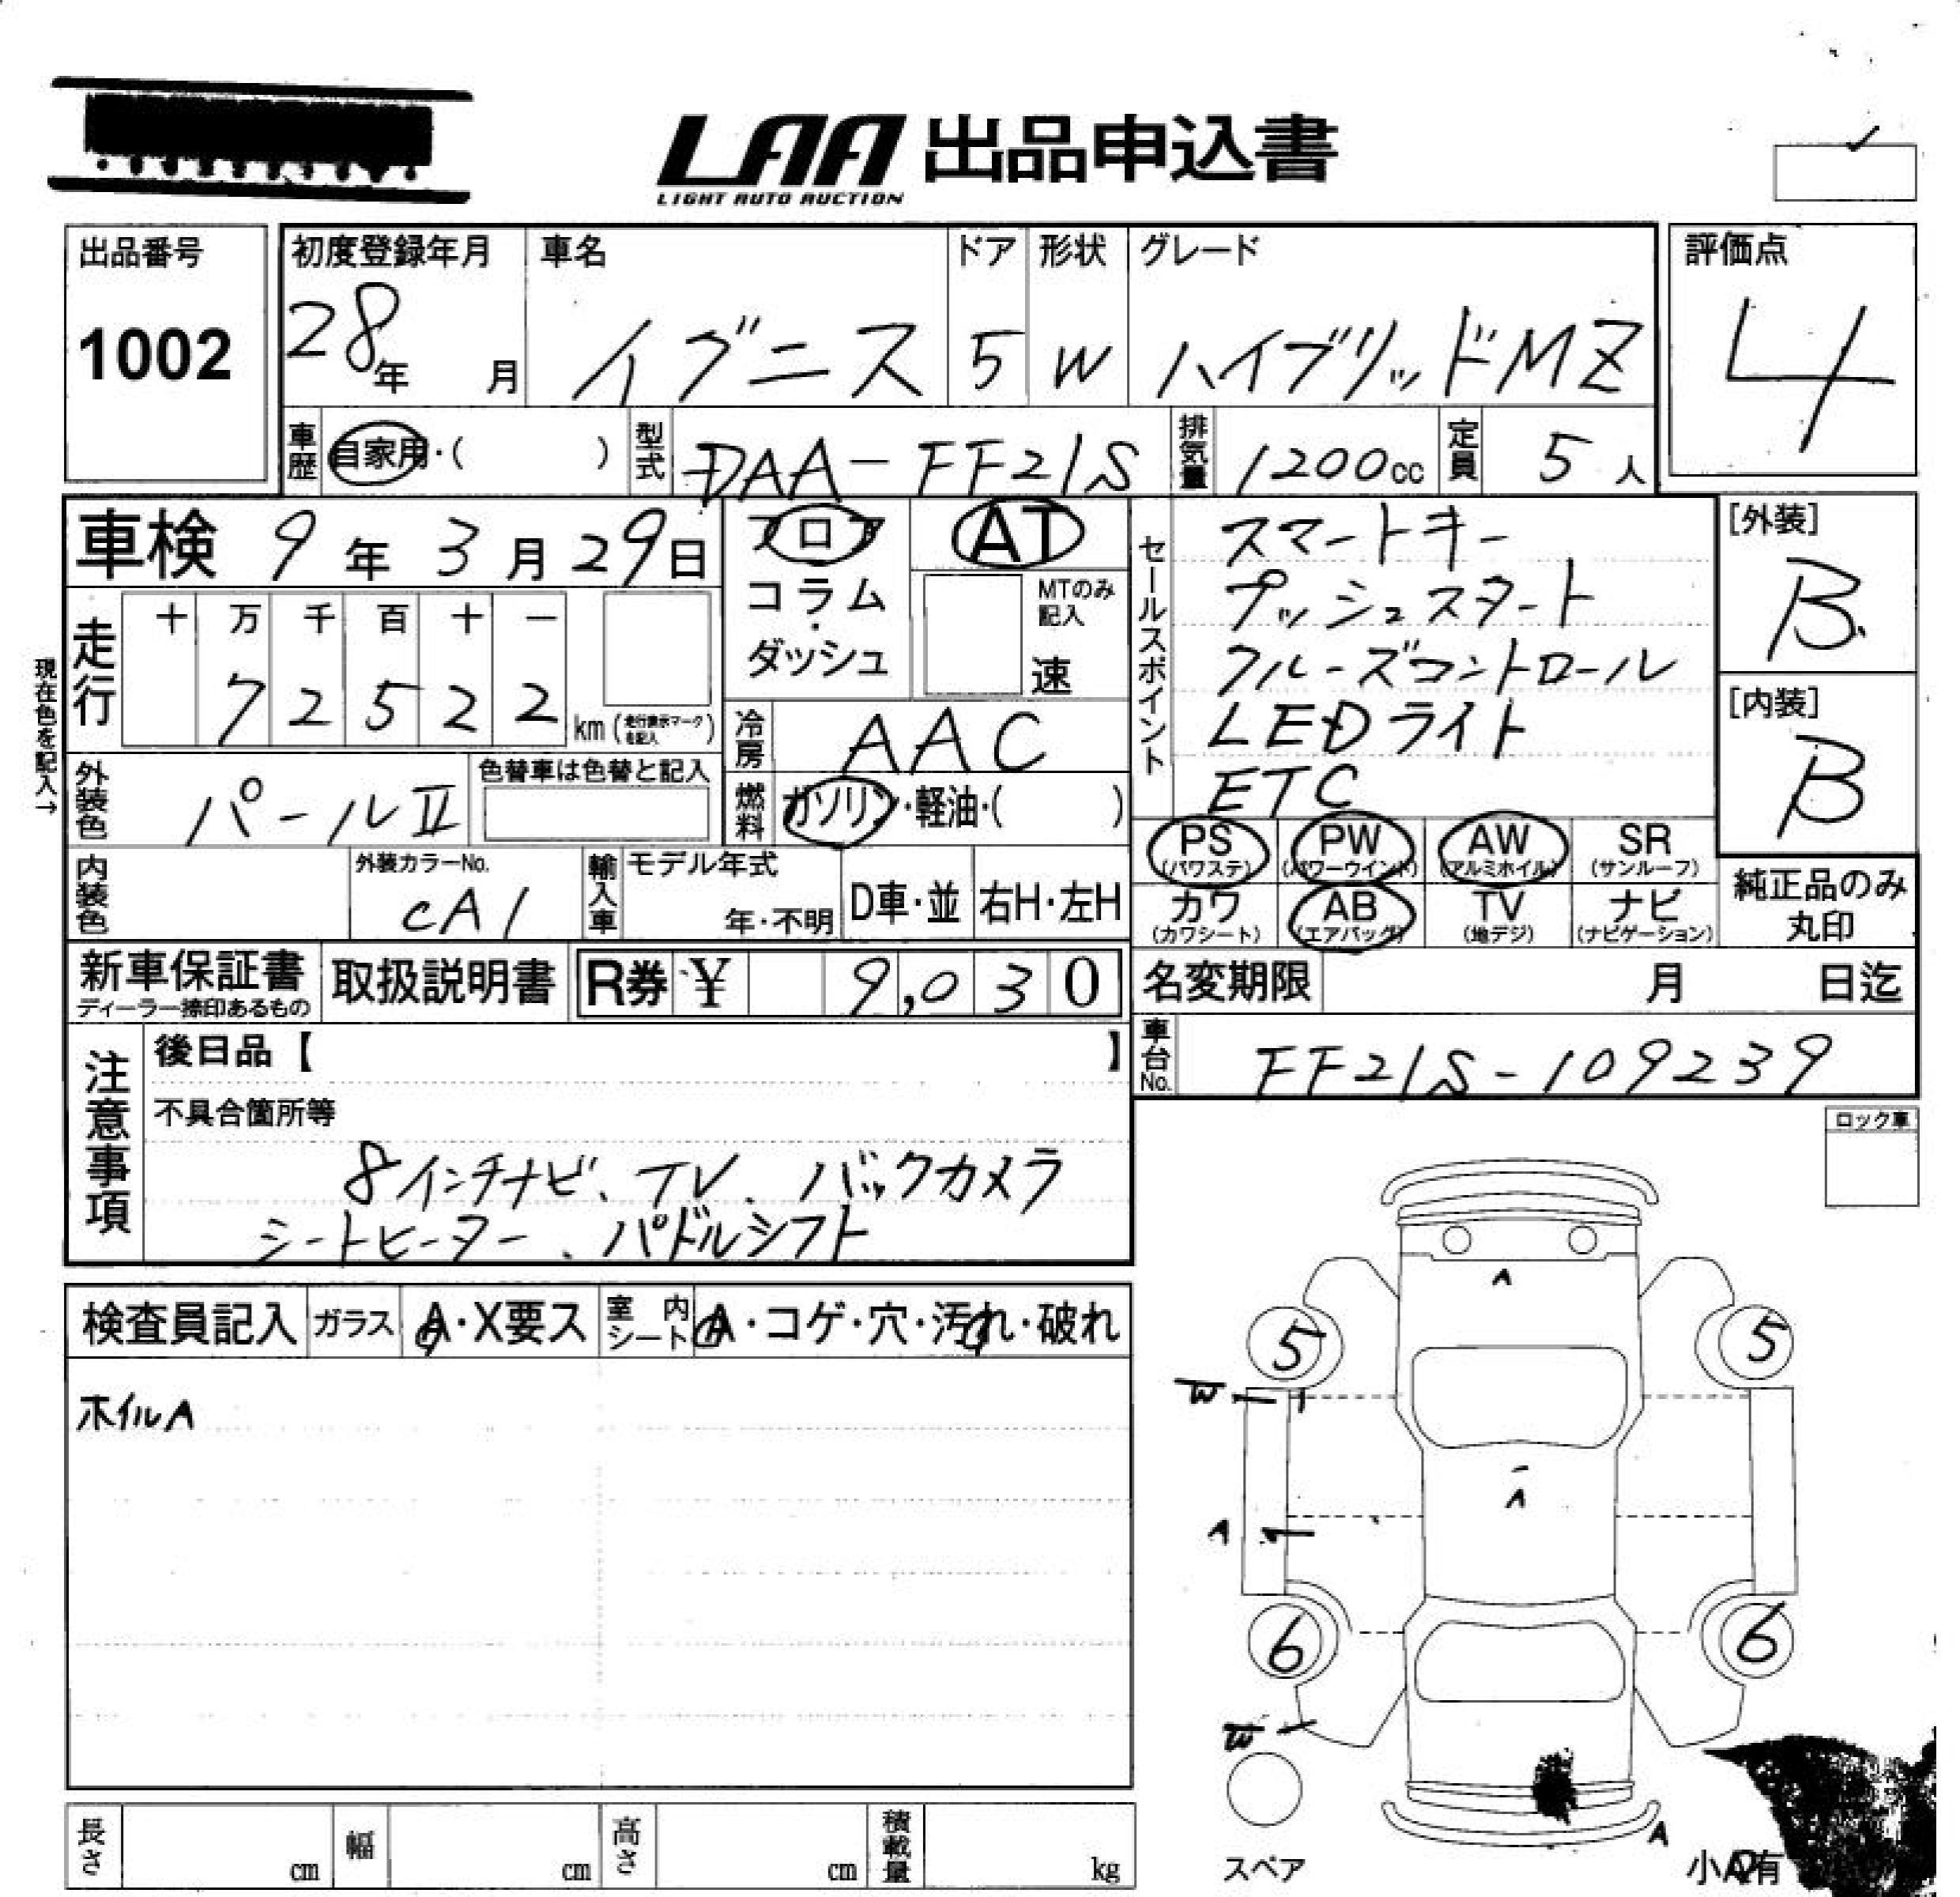 LAA 出品申込書
LIGHT AUTO AUCTION
出品番号
1002
初度登録年月
28年 月
車名
イグニス
ドア
5
形状
W
グレード
ハイブリッドMZ
評価点
4
車歴 自家用・( )
型式 DAA-FF21S
排気量 1200cc
定員 5人
車検 9年3月29日
フロア
コラム・ダッシュ
AT
MTのみ記入
速
セールスポイント
スマートキー
プッシュスタート
クルーズコントロール
LEDライト
ETC
[外装]
B
[内装]
B
現在色を記入→
走行
十 万 千 百 十 一
7 2 5 2 2 km (走行表示マークを記入)
冷房 AAC
燃料 ガソリン・軽油・( )
外装色 パールII
色替車は色替と記入
内装色
外装カラーNo.
CA1
輸入車
モデル年式
年・不明
D車・並
右H・左H
PS (パワステ)
PW (パワーウインド)
AW (アルミホイル)
SR (サンルーフ)
カワ (カワシート)
AB (エアバッグ)
TV (地デジ)
ナビ (ナビゲーション)
純正品のみ
丸印
新車保証書
ディーラー捺印あるもの
取扱説明書
R券 ¥ 9,030
名変期限 月 日迄
車台No. FF21S-109239
注意事項
後日品【 】
不具合箇所等
8インチナビ、TV、バックカメラ
シートヒーター、パドルシフト
ロック車
検査員記入
ガラス A・X要ス
室内シート A・コゲ・穴・汚れ・破れ
ホイルA
A
5 5
W
A
A
6 6
W
A
スペア
長さ cm
幅 cm
高さ cm
積載量 kg